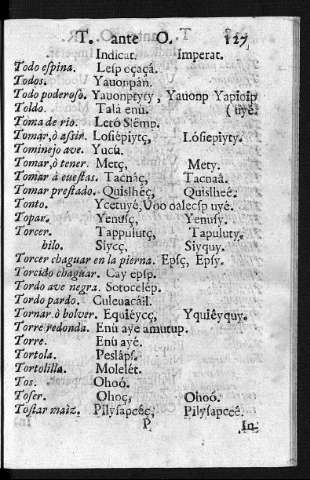 T. ante O. 127
Indicat. Imperat.
Todo espina. Lesp oçaçâ.
Todos. Yauonpán.
Todo poderosò. Yauonptyty, Yauonp Yapioip
Toldo. Talà enù. ( uyê.
Toma de rio. Letó Slêmp.
Tomar, ò assir. Losiêpiytç, Lósiepiyty.
Tominejo ave. Yucú.
Tomar, ò tener. Metç, Mety.
Tomar à cuestas. Tacnàç, Tacnaâ.
Tomar prestado. Quislheç, Quislheê.
Tonto. Ycetuyê, Uoo oalecsp uyé.
Topar. Yenusç, Yenusy.
Torcer. Tappulutç, Tapuluty.
hilo. Siycç, Siyquy.
Torcer chaguar en la pierna. Epsç, Epsy.
Torcido chaguar. Cay epsp.
Tordo ave negra. Sotocelép.
Tordo pardo. Culeuacâil.
Tornar ò bolver. Equiêyçç, Yquiêyquy.
Torre redonda. Enù aye amutup.
Torre. Enù ayé.
Tortola. Peslâps.
Tortolilla. Molelét.
Tos. Ohoó.
Toser. Ohoç, Ohoó.
Tostar maìz. Pilysapcéç, Pilysapceê.
P In